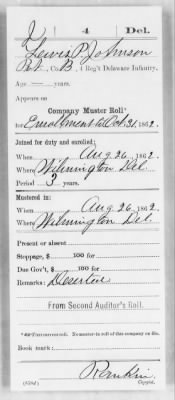 J 4 Del.
Lewis P. Johnson
Pvt., Co. B, 4 Reg't Delaware Infantry.
Age — years.
Appears on
Company Muster Roll*
for Enrollment to Oct. 31, 1862.
Joined for duty and enrolled:
When Aug. 26, 1862.
Where Wilmington Del.
Period 3 years.
Mustered in:
When Aug 26, 1862.
Where Wilmington Del.
Present or absent
Stoppage, $ 100 for
Due Gov't, $ 100 for
Remarks: Deserted
From Second Auditor's Roll.
Book mark:
Rankin
Copyist.